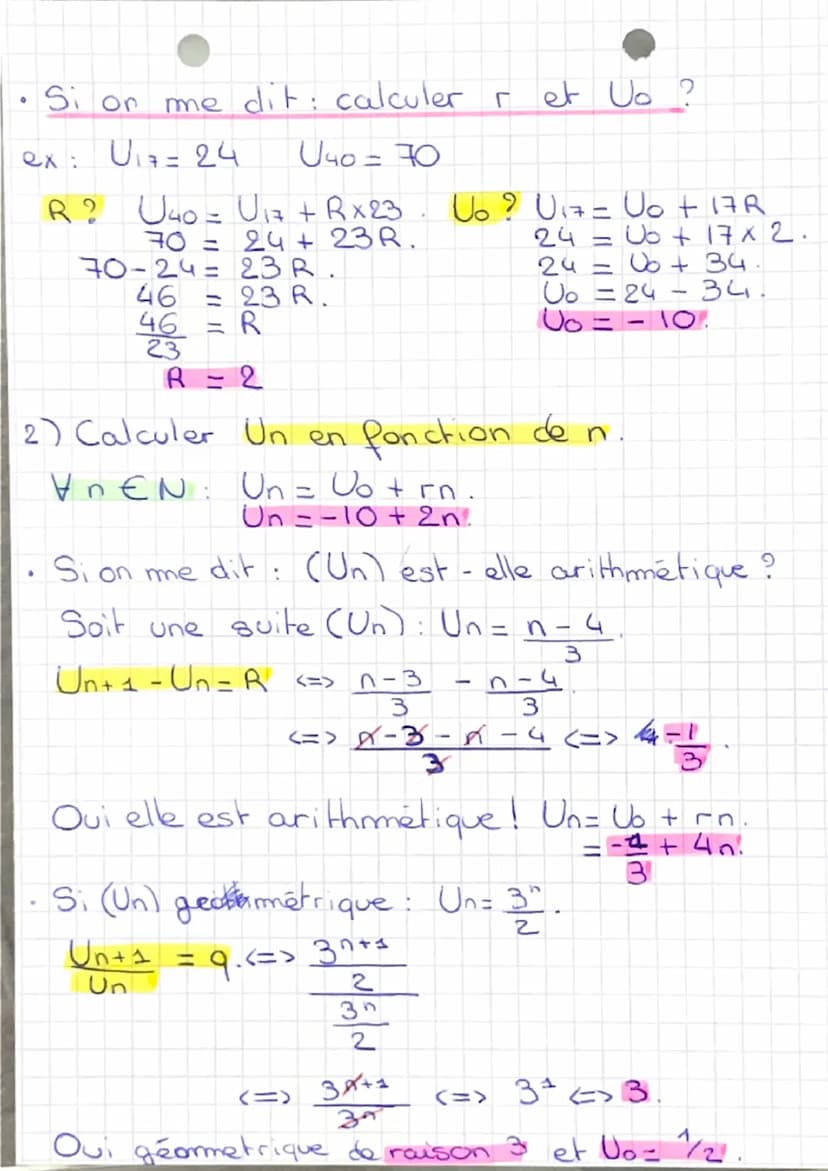 • Si on me dit : calculer r et U0 ?
ex : U17 = 24 U40 = 70
R ? U40 = U17 + R×23.
70 = 24 + 23R.
70 - 24 = 23R.
46 = 23R.
46/23 = R
R = 2
U0 ? U17 = U0 + 17R
24 = U0 + 17 × 2.
24 = U0 + 34.
U0 = 24 - 34.
U0 = -10.
2) Calculer Un en fonction de n.
∀ n ∈ N : Un = U0 + rn.
Un = -10 + 2n.
• Si on me dit : (Un) est-elle arithmétique ?
Soit une suite (Un) : Un = (n - 4)/3.
Un+1 - Un = R <=> (n-3)/3 - (n-4)/3.
<=> (n-3-n-4)/3 <=> -1/3.
Oui elle est arithmétique ! Un = U0 + rn.
= -4/3 + 4n.
• Si (Un) geométrique : Un = 3^n/2.
Un+1/Un = q. <=> (3^(n+1)/2)/(3^n/2)
<=> 3^(n+1)/3^n <=> 3^1 <=> 3.
Oui géometrique de raison 3 et U0 = 1/2.